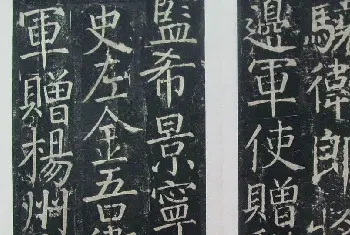 驍衛郎將
邊軍使贈
監希景寧
史左金吾衛
軍贈楊州